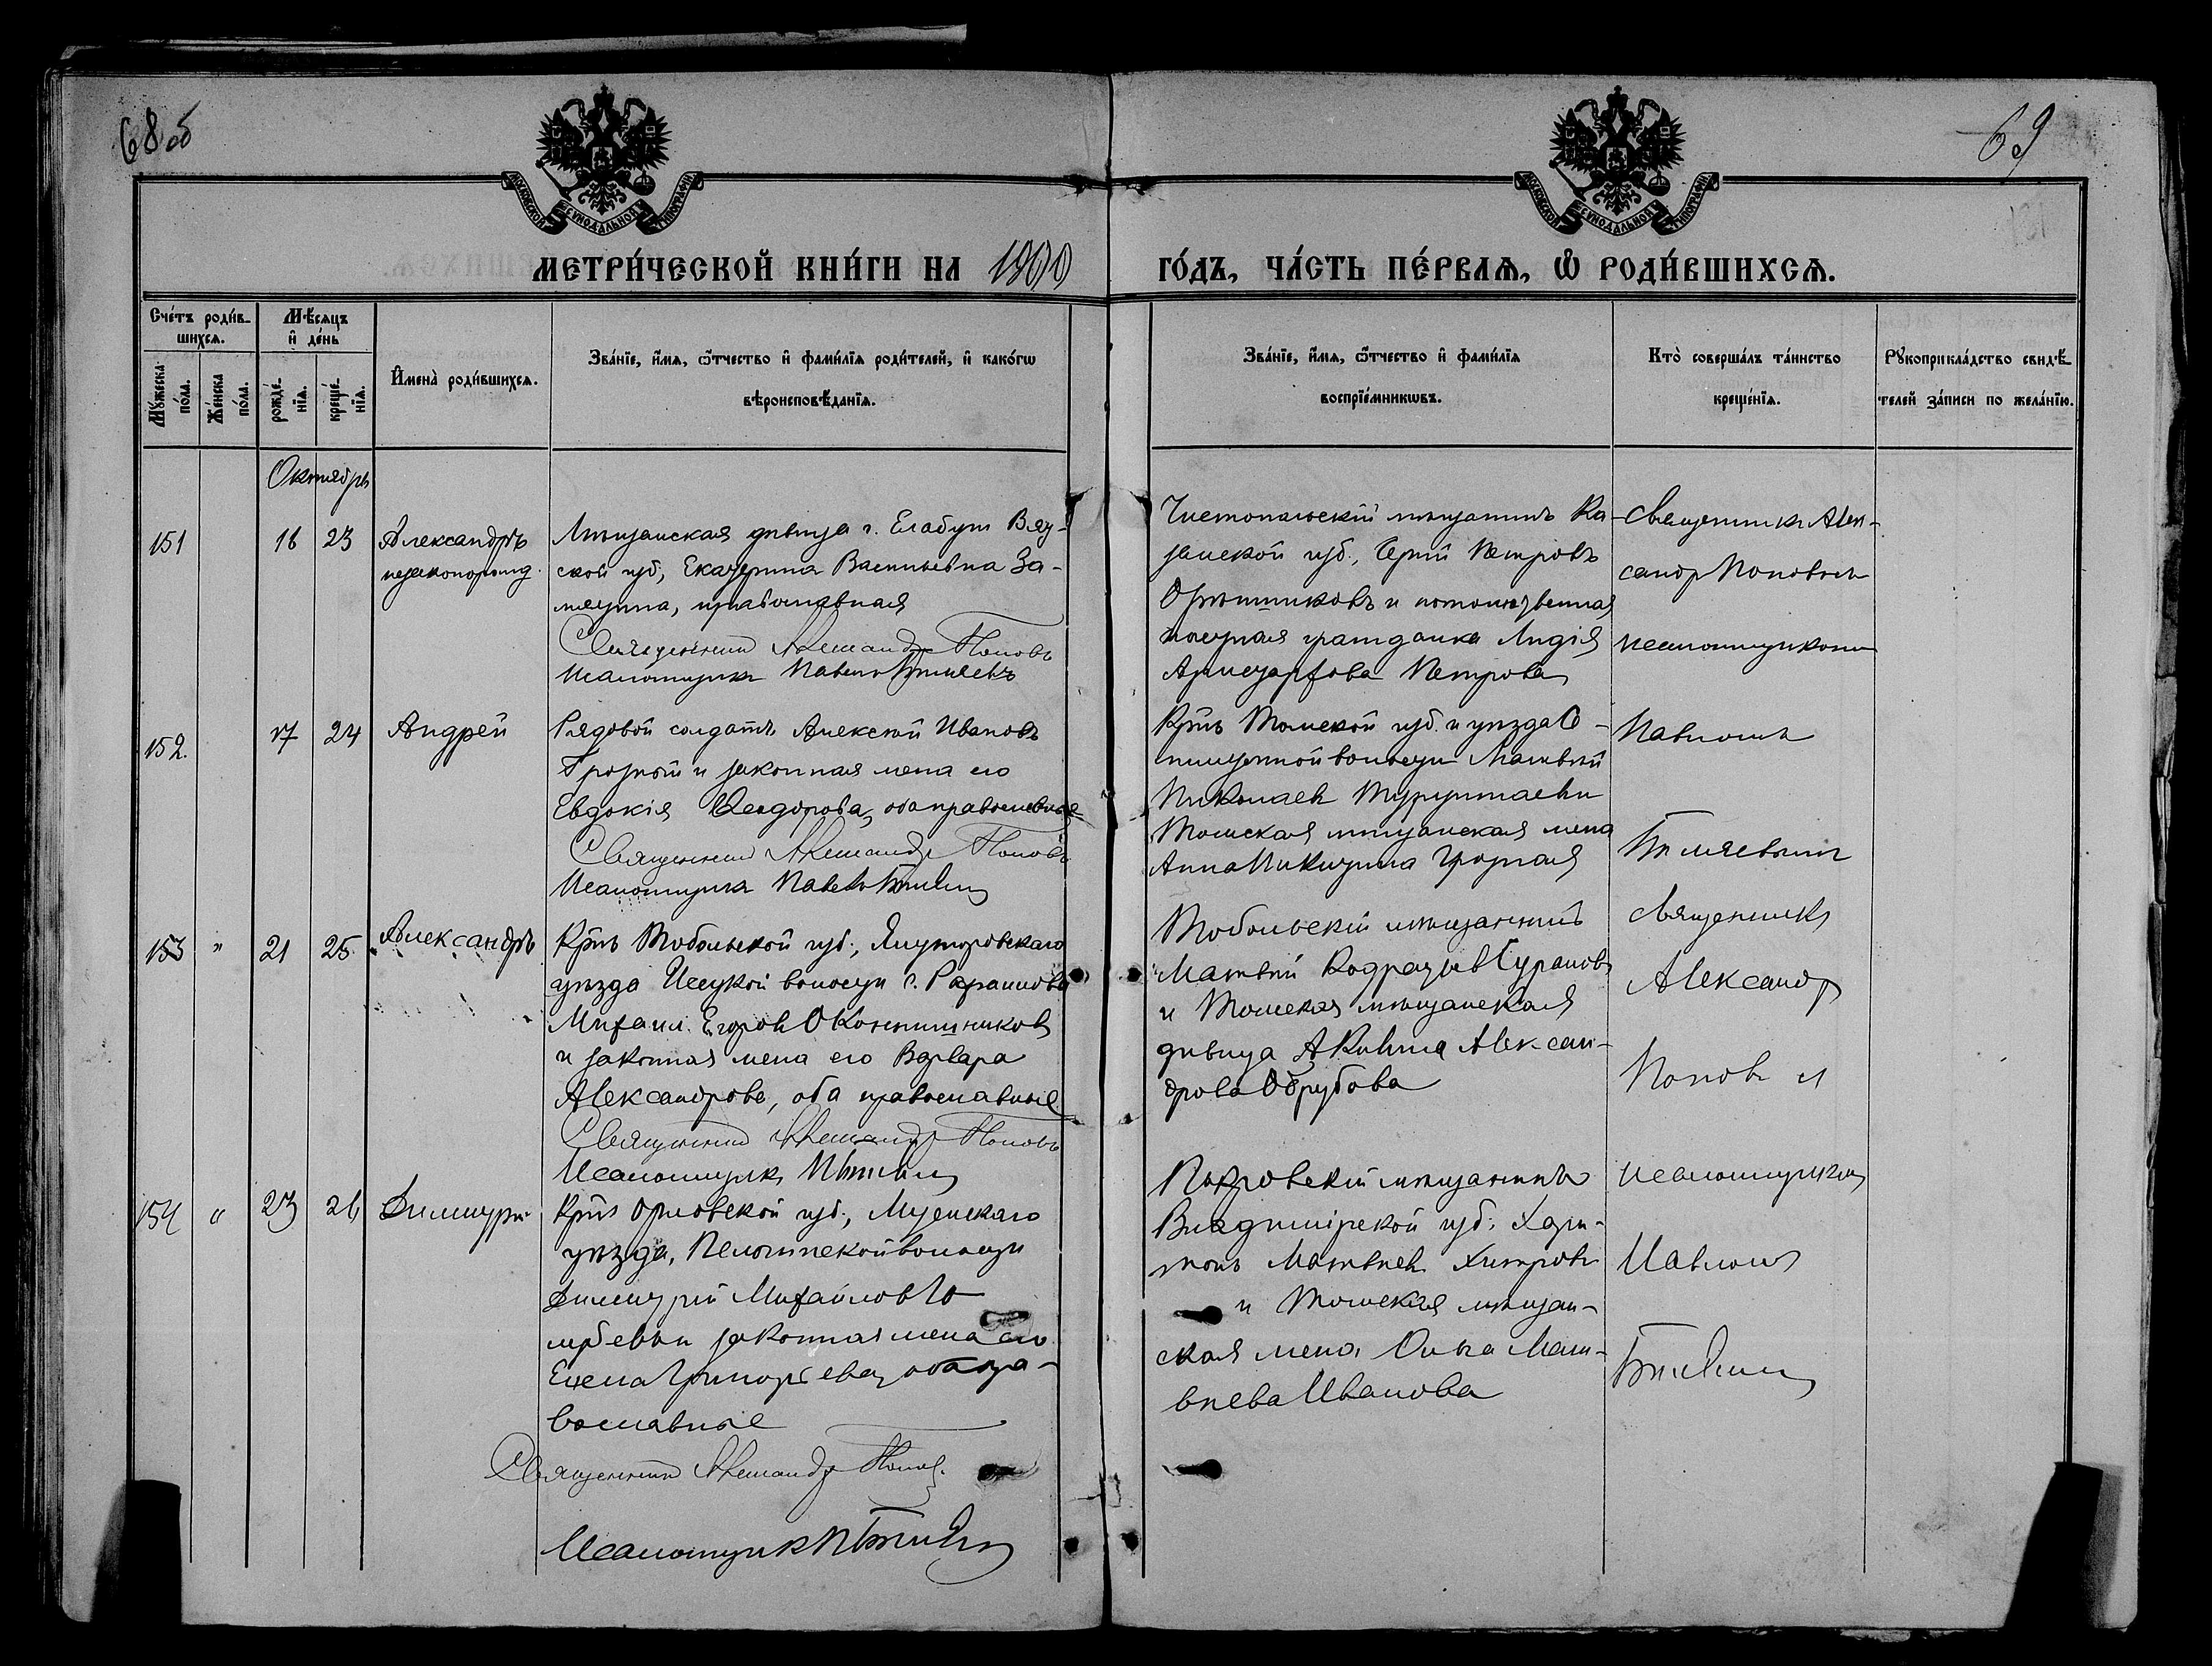 68 об
69
МОСКОВСКОЙ СѴНОДАЛЬНОЙ ТИПОГРАФІИ
МОСКОВСКОЙ СѴНОДАЛЬНОЙ ТИПОГРАФІИ
МЕТРИ́ЧЕСКОЙ КНИ́ГИ НА 1900
ГО́ДЪ, ЧА́СТЬ ПЕ́РВАѦ, Ѽ РОДИ́ВШИХСѦ.
Сче́тъ роди́в-
шихсѧ.
Мѣ́сѧцъ
и҆ де́нь
Мꙋ́жеска по́ла.
Же́нска по́ла.
рожде́-нїѧ.
креще́-нїѧ.
И҆мена̀ роди́вшихсѧ.
Зва́нїе, и҆́мѧ, ѻ҆́тчество и҆ фами́лїѧ роди́телей, и҆ како́гѡ
вѣроисповѣ́данїѧ.
Зва́нїе, и҆́мѧ, ѻ҆́тчество и҆ фами́лїѧ
воспрїе́мникѡвъ.
Кто̀ соверша́лъ та́инство
креще́нїѧ.
Рꙋкоприкла́дство свидѣ́-
телей за́писи по жела́нїю.
Октябрь
151 16 23 Александръ
незаконорожд.
Мѣщанская дѣвица г. Елабуги Вят-
ской губ, Екатерина Васильевна За-
православная
Священникъ Александръ Поповъ
Псаломщикъ Павелъ Бѣляевъ
Чистопольскій мѣщанинъ Ка-
занской губ., Сергій Петровъ
Орѣшниковъ и потомственная
почетная гражданка Лидія
Петрова
Священникъ Алек-
сандр Поповъ съ
псаломщикомъ
152. 17 24 Андрей
Рядовой солдатъ Алексѣй Ивановъ
Грозный и законная жена его
Евдокія Феодорова, оба православные
Священникъ Александръ Поповъ
Псаломщикъ Павелъ Бѣляевъ
Крнъ Томской губ. и уѣзда С-
волости Матвѣй
Николаевъ
Томская мѣщанская жена
Анна Никитина Грозная
Павломъ
Бѣляевымъ
153 " 21 25 Александръ
Крнъ Тобольской губ., Ялуторовскаго
уѣзда Исецкой волости с.
Михаилъ Егоровъ Оконнишниковъ
и законная жена его Варвара
Александрова, оба православные
Священникъ Александръ Поповъ
Псаломщикъ П Бѣляевъ
Тобольскій мѣщанинъ
Матвѣй Кодратьевъ Сурановъ
и Томская мѣщанская
дѣвица Акилина Алексан-
дрова Обрубова
Священникъ
Александръ
Поповъ и
154 " 23 26 Димитрій
Крнъ Орловской губ., Мценскаго
уѣзда, волости
Димитрій Михайловъ
законная жена его
Елена Григорьева, оба пра-
вославные
Священникъ Александръ Поповъ
Псаломщикъ П Бѣляевъ
Покровскій мѣщанинъ
Владимірской губ. Хари-
тонъ Матвѣевъ Хитровъ
и Томская мѣщан-
ская жена Ольга Мат-
вѣева Иванова
псаломщикомъ
Павломъ
Бѣляевымъ